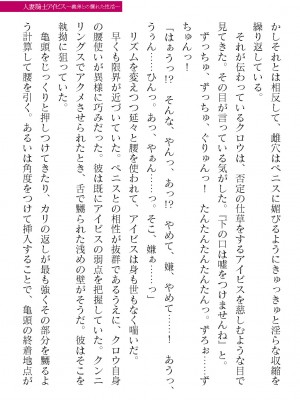 人妻騎士アイビス
かしそれとは相反して、雌穴はペニスに媚びるようにきゅっきゅっと淫らな収縮を
繰り返している。
それが伝わっているクロウは、否定の仕草をするアイビスを慈しむような目で
見てきた。その目が言っている気がした。『下の口は嘘をつけませんね』と。
ずっちゅ、ずっちゅ、ぐりゅんっ! たんたんたんたんたんっ。ずろぉ…ず
ちゅんっ!
「はぁうっ!? そんな、やんっ、あっ!? やめて、嫌、やめて……! あうっ、
うぅん……ひんっ。あっ、やぁん……っ。そこ、嫌ぁ……っ」
リズムを変えつつ延々と腰を使われて、アイビスは身も世もなく喘いだ。
早くも限界が近づいていた。ペニスとの相性が抜群であるうえに、クロウ自身
の腰使いが異様に巧みだった。彼は既にアイビスの弱点を把握していた。クンニ
リングスでアクメさせられたとき、舌で嬲られた浅めの壁がそうだ。彼はそこを
執拗に狙っていた。
亀頭をじっくりと押しつけてきたり、カリの返しが最も強くその部分を嬲るよ
う計算して腰を引く。あるいは角度をつけて挿入することで、亀頭の終着地点が